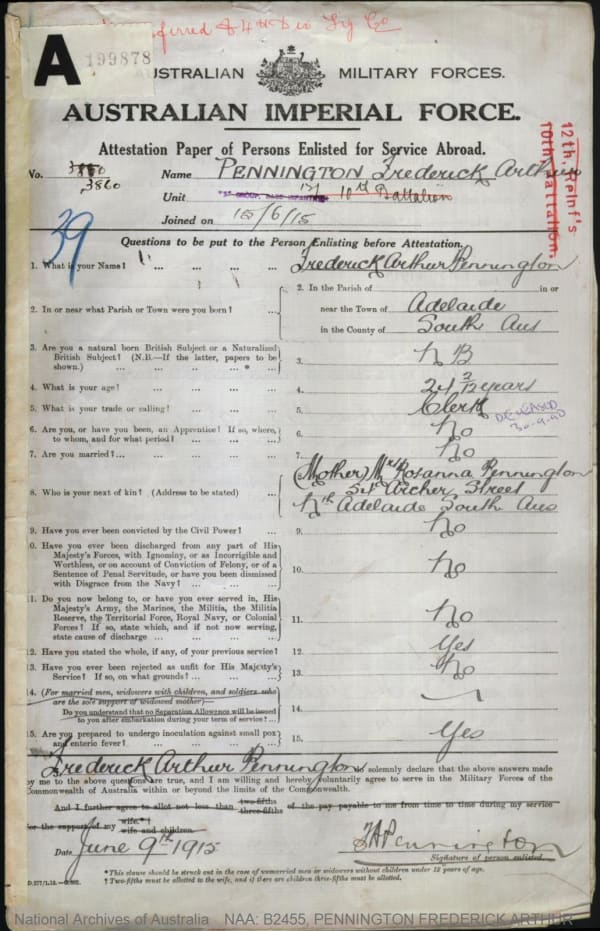 A
199878
AUSTRALIAN MILITARY FORCES.
AUSTRALIAN IMPERIAL FORCE.
Attestation Paper of Persons Enlisted for Service Abroad.
12th. Reinf's
10th Battalion.
No. 3860 Name PENNINGTON Frederick Arthur
3860
Unit 10th Battalion
Joined on 15/6/15
39
Questions to be put to the Person Enlisting before Attestation.
1. What is your Name? ... ... ... ... Frederick Arthur Pennington
2. In or near what Parish or Town were you born? ... 2. In the Parish of in or
near the Town of Adelaide
in the County of South Aus
3. Are you a natural born British Subject or a Naturalized
British Subject? (N.B.—If the latter, papers to be
shown.) ... ... ... ... 3. N B
4. What is your age? ... ... ... ... 4. 24 3/12 years
5. What is your trade or calling? ... ... ... 5. Clerk
DECEASED
6. Are you, or have you been, an Apprentice? If so, where,
to whom, and for what period? ... ... ... 6. No
7. Are you married? ... ... ... ... 7. No
8. Who is your next of kin? (Address to be stated) ... 8. (Mother) Mrs Rosanna Pennington
Archer Street
Nth Adelaide South Aus
9. Have you ever been convicted by the Civil Power? ... 9. No
0. Have you ever been discharged from any part of His
Majesty's Forces, with Ignominy, or as Incorrigible and
Worthless, or on account of Conviction of Felony, or of a
Sentence of Penal Servitude, or have you been dismissed
with Disgrace from the Navy? ... ... ... 10. No
1. Do you now belong to, or have you ever served in, His
Majesty's Army, the Marines, the Militia, the Militia
Reserve, the Territorial Force, Royal Navy, or Colonial
Forces? If so, state which, and if not now serving,
state cause of discharge ... ... ... 11. No
2. Have you stated the whole, if any, of your previous service? 12. Yes
3. Have you ever been rejected as unfit for His Majesty's
Service? If so, on what grounds? ... ... 13. No
4. (For married men, widowers with children, and soldiers who
are the sole support of widowed mother)—
Do you understand that no Separation Allowance will be issued
to you after embarkation during your term of service? ... 14. —
5. Are you prepared to undergo inoculation against small pox
and enteric fever? ... ... ... ... 15. Yes
Frederick Arthur Pennington do solemnly declare that the above answers made
by me to the above questions are true, and I am willing and hereby voluntarily agree to serve in the Military Forces of the
Commonwealth of Australia within or beyond the limits of the Commonwealth.
And I further agree to allot not less than two-fifths three-fifths of the pay payable to me from time to time during my service
for the support of my wife.* wife and children.
Date June 9th 1915 FAPennington
Signature of person enlisted.
*This clause should be struck out in the case of unmarried men or widowers without children under 18 years of age.
† Two-fifths must be allotted to the wife, and if there are children three-fifths must be allotted.
National Archives of Australia NAA: B2455, PENNINGTON FREDERICK ARTHUR